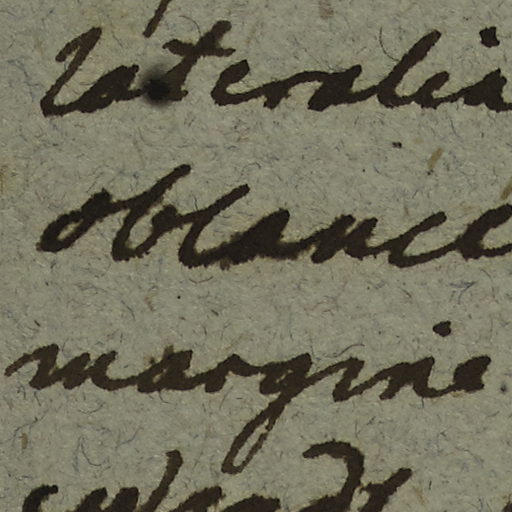 lateralia
oblance
margine